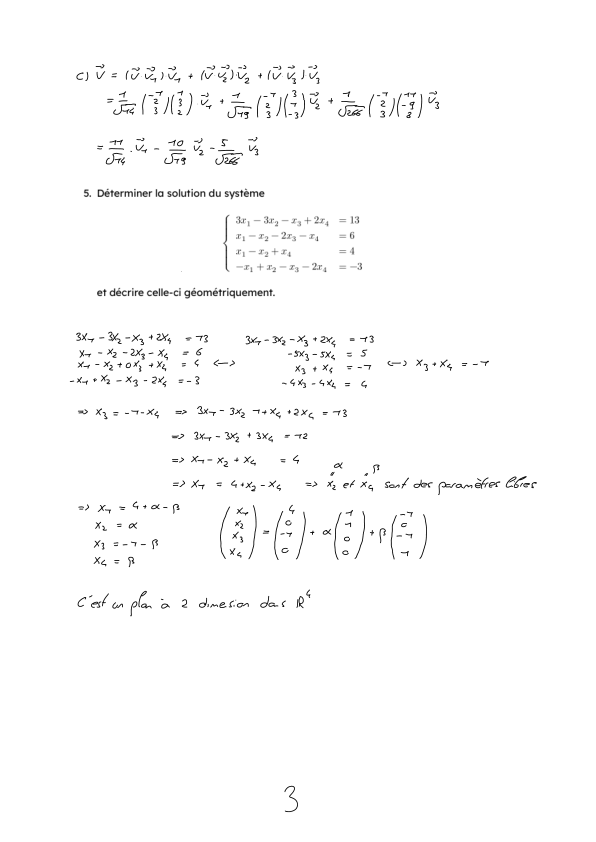 c) v⃗ = (v⃗ v⃗₁) v⃗₁ + (v⃗ v⃗₂) v⃗₂ + (v⃗ v⃗₃) v⃗₃
= 1/√14 (-1 2 3)(1 3 2) v⃗₁ + 1/√19 (-1 2 3)(3 1 -3) v⃗₂ + 1/√266 (-1 2 3)(11 -9 8) v⃗₃
= 11/√14 · v⃗₁ - 10/√19 v⃗₂ - 5/√266 v⃗₃
5. Déterminer la solution du système
3x₁ − 3x₂ − x₃ + 2x₄ = 13
x₁ − x₂ − 2x₃ − x₄ = 6
x₁ − x₂ + x₄ = 4
−x₁ + x₂ − x₃ − 2x₄ = −3
et décrire celle-ci géométriquement.
3x₁ - 3x₂ - x₃ + 2x₄ = 13 3x₁ - 3x₂ - x₃ + 2x₄ = 13
x₁ - x₂ - 2x₃ - x₄ = 6 -5x₃ - 5x₄ = 5
x₁ - x₂ + 0x₃ + x₄ = 4 <=> x₃ + x₄ = -1 <=> x₃ + x₄ = -1
-x₁ + x₂ - x₃ - 2x₄ = -3 -4x₃ - 4x₄ = 4
=> x₃ = -1 - x₄ => 3x₁ - 3x₂ 1 + x₄ + 2x₄ = 13
=> 3x₁ - 3x₂ + 3x₄ = 12
=> x₁ - x₂ + x₄ = 4
α β
=> x₁ = 4 + x₂ - x₄ => x₂ et x₄ sont des paramètres libres
=> x₁ = 4 + α - β
x₂ = α
x₃ = -1 - β
x₄ = β
(x₁ x₂ x₃ x₄) = (4 0 -1 0) + α (1 1 0 0) + β (-1 0 -1 1)
C'est un plan à 2 dimesion dans ℝ⁴
3